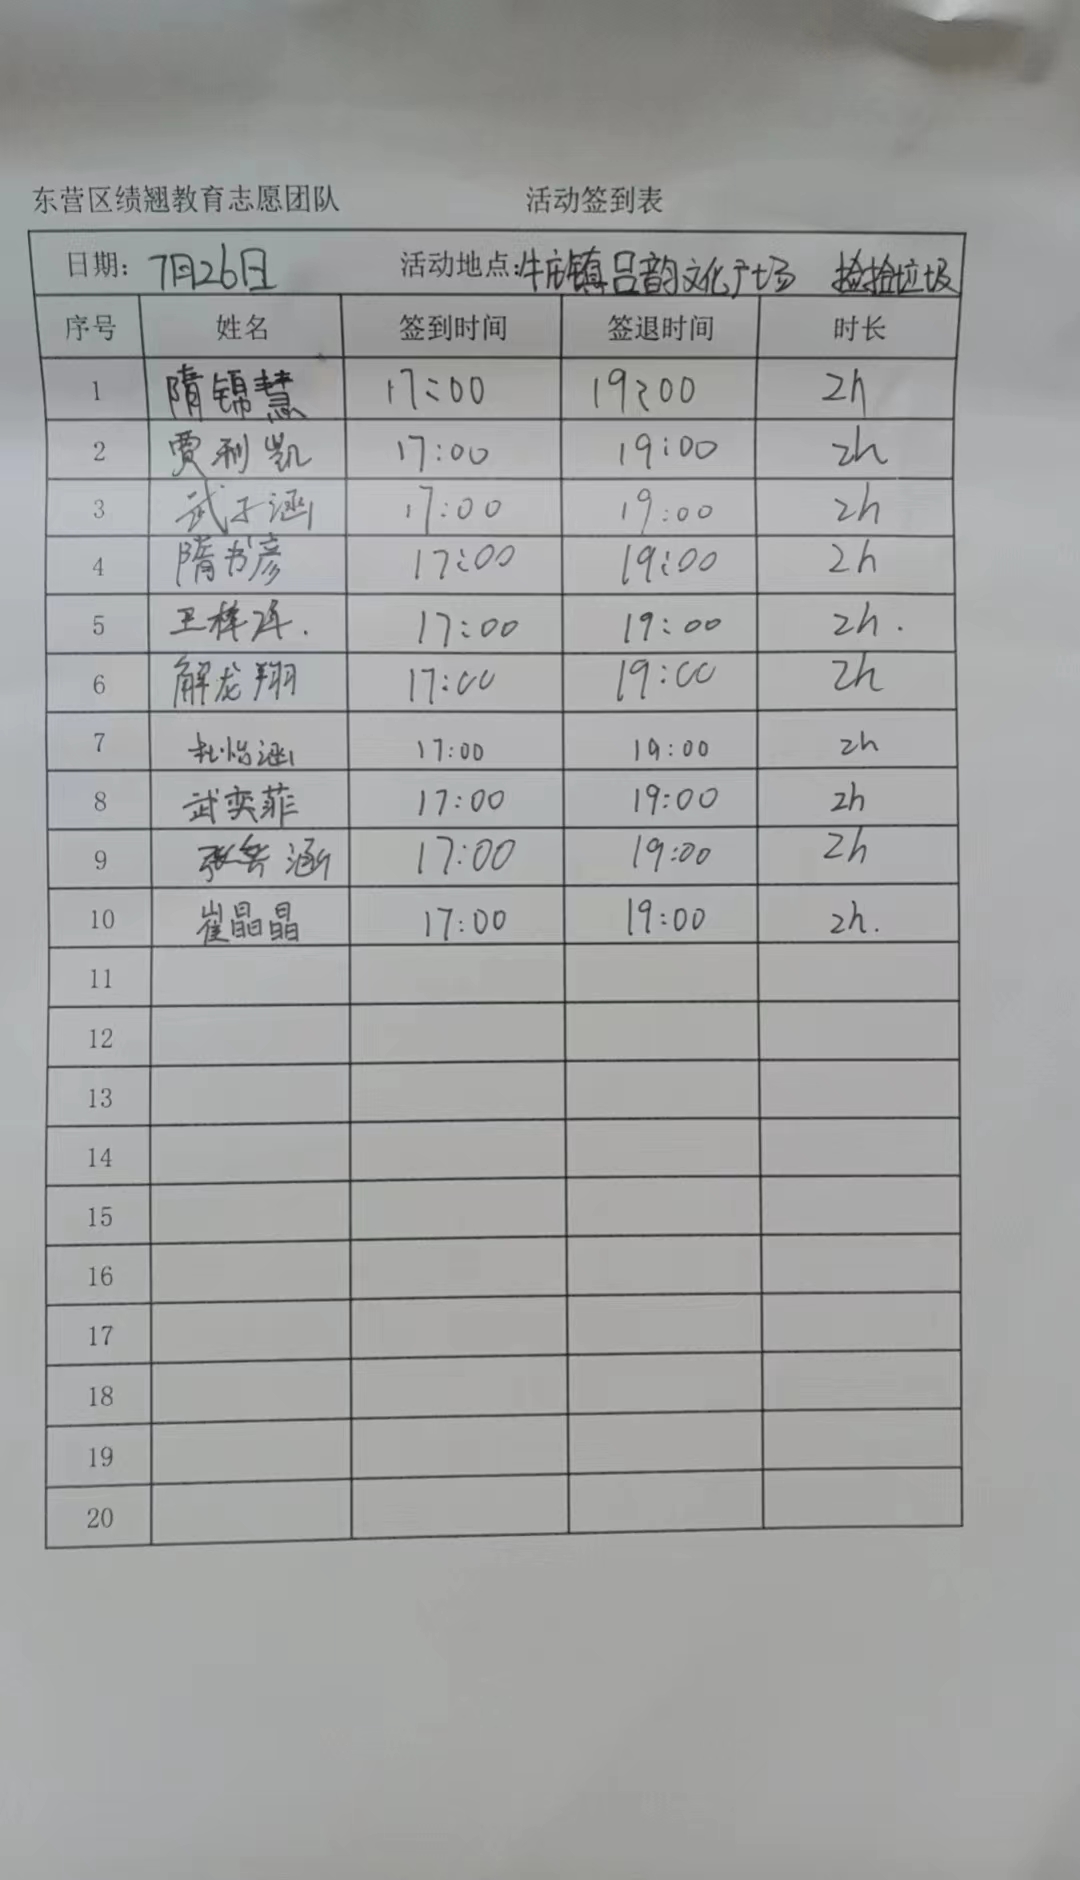 东营区绩翘教育志愿团队 活动签到表
日期：7月26日 活动地点：牛庄镇吕韵文化广场 捡拾垃圾
序号 姓名 签到时间 签退时间 时长
1 隋锦慧 17:00 19:00 2h
2 贾利凯 17:00 19:00 2h
3 武子涵 17:00 19:00 2h
4 隋书彦 17:00 19:00 2h
5 王梓泽. 17:00 19:00 2h.
6 解龙翔 17:00 19:00 2h
7 杜怡涵 17:00 19:00 2h
8 武奕菲 17:00 19:00 2h
9 张 涵 17:00 19:00 2h
10 崔晶晶 17:00 19:00 2h.
11
12
13
14
15
16
17
18
19
20